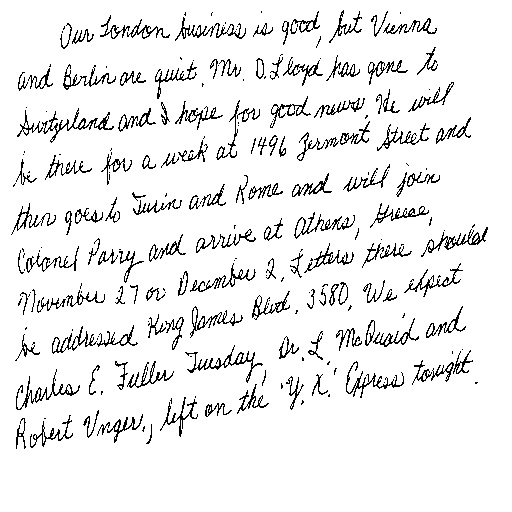 Our London business is good, but Vienna
and Berlin are quiet. Mr. D. Lloyd has gone to
Switzerland and I hope for good news. He will
be there for a week at 1496 Zermont Street and
then goes to Turin and Rome and will join
Colonel Parry and arrive at Athens, Greece,
November 27 or December 2. Letters there should
be addressed King James Blvd. 3580. We expect
Charles E. Fuller Tuesday. Dr. L. McQuaid and
Robert Unger., left on the 'Y. X.' Express tonight.